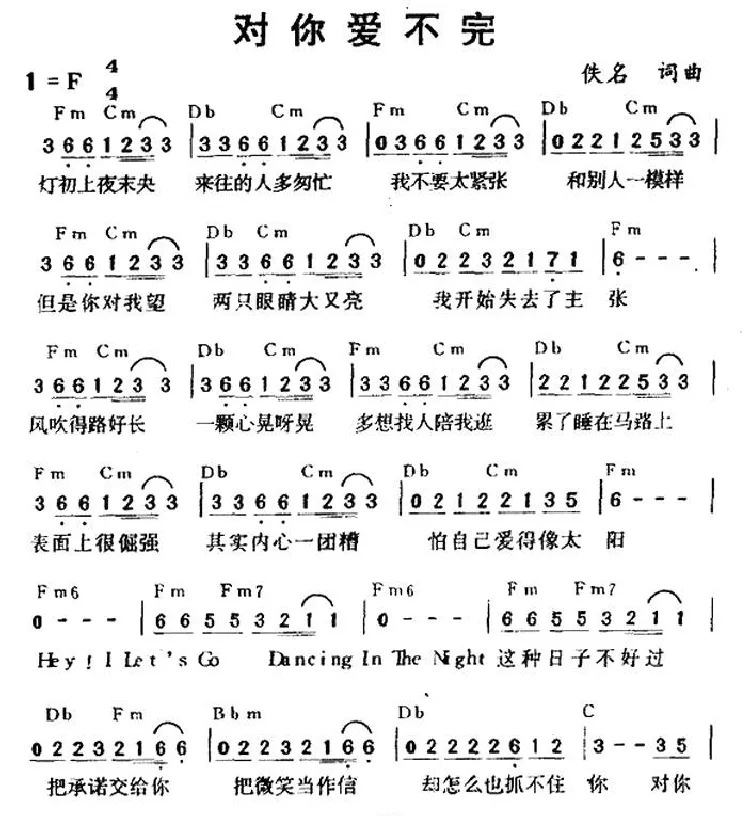 对你爱不完
1=F 4/4 佚名 词曲
Fm Cm Db Cm Fm Cm Db Cm
3661233 | 33661233 | 03661233 | 02212533 |
灯初上夜未央 来往的人多匆忙 我不要太紧张 和别人一模样
Fm Cm Db Cm Db Cm Fm
3661233 | 33661233 | 02232171 | 6--- |
但是你对我望 两只眼睛大又亮 我开始失去了主 张
Fm Cm Db Cm Fm Cm Db Cm
3661233 | 33661233 | 33661233 | 22122533 |
风吹得路好长 一颗心晃呀晃 多想找人陪我逛 累了睡在马路上
Fm Cm Db Cm Db Cm Fm
3661233 | 33661233 | 02122135 | 6--- |
表面上很倔强 其实内心一团糟 怕自己爱得像太 阳
Fm6 Fm Fm7 Fm6 Fm Fm7
0--- | 66553211 | 0--- | 66553211 |
Hey! I Let's Go Dancing In The Night 这种日子不好过
Db Fm Bbm Db C
02232166 | 02232166 | 02222612 | 3--35 |
把承诺交给你 把微笑当作信 却怎么也抓不住 你 对你